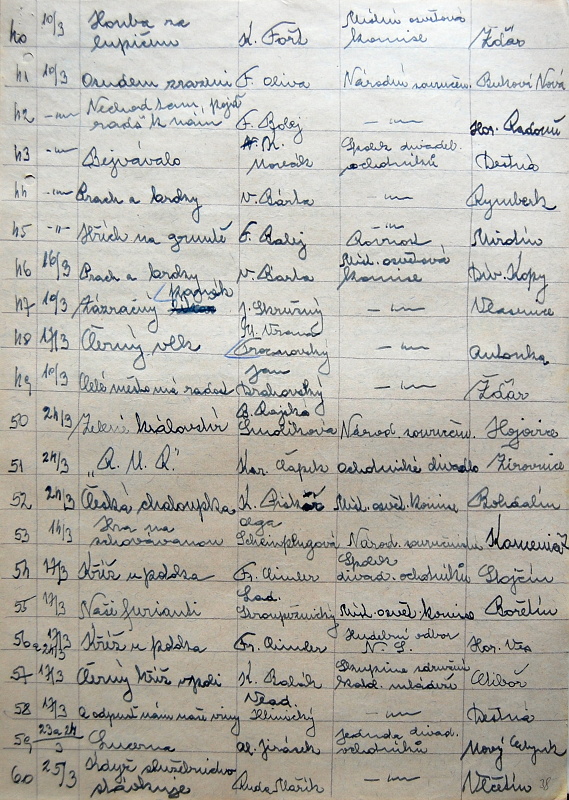 40 10/3 Honba za lupičem K. Fořt Místní osvětová komise Žďár
41 10/3 Osudem zrazeni F. Oliva Národní souručen. Buková Nová
42 -"- Nechoď tam, pojď radš k nám F. Balej -"- Hor. Radouň
43 -"- Bejvávalo Spolek divadel. ochotníků Deštná
44 -"- Prach a broky V. Bárta -"- Rynberk
45 -"- Hřích na gruntě F. Balej -"- Rovnost Mirotín
46 16/3 Prach a broky V. Barta Míst. osvětová komise Div. Kopy
47 10/3 Zázračný J. Skružný -"- Vlásenice
48 17/3 Černý vlk -"- Antonka
49 10/3 Celé město má radost Jan Drahovský -"- Žďár
50 24/3 Zelené království Smolíková Národ. souručen. Hojovice
51 24/3 „R. U. R.“ Kar. Čapek ochotnické divadlo Žirovnice
52 24/3 Česká chaloupka K. Míst. osvět. komise Bohdalín
53 14/3 Hra na schovávanou Olga Scheinpflugová Národ. souručenství Kamenice
54 17/3 Kříž u potoka Fr. Cimler Spolek divad. ochotníků Stojčín
55 17/3 Naši furianti Lad. Stroupežnický Míst. osvět. komise Bořetín
56 17/3 a 24/3 Kříž u potoka Fr. Cimler Hudební odbor N. S. Hor. Ves
57 17/3 Černý kříž v poli K. Skupina sdružen. katol. mládeže Ctiboř
58 17/3 A odpusť nám naše viny Vlad. -"- Deštná
59 23 a 24/3 Lucerna Al. Jirásek Jednota divad. ochotníků Nový
60 25/3 Když služebnictvo stávkuje Ruda Mařík -"- Včelín
38